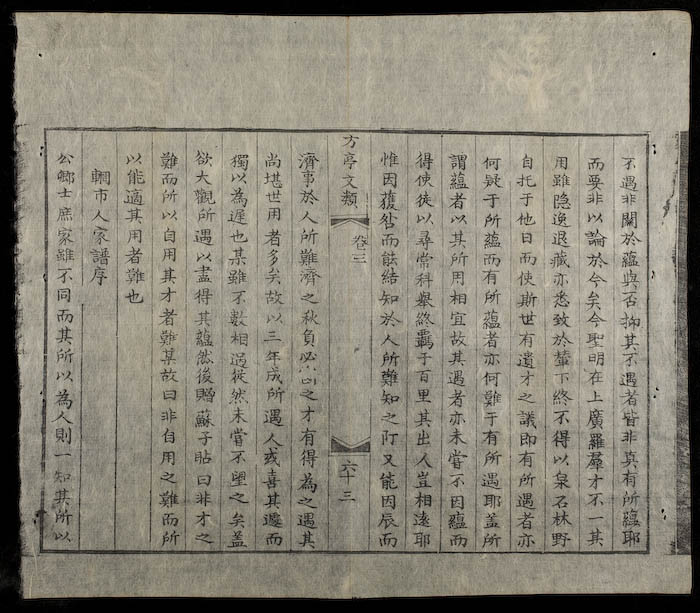 不遇非關於蘊與否抑其不遇者皆非真有所蘊耶
而要非以論於今矣今聖明在上廣羅羣才不一其
用雖隐逸退藏亦悉致於輦下終不得以泉石林野
自托于他日而使斯世有遺才之議即有所遇者亦
何疑于所蘊而有所蘊者亦何難于有所遇耶盖所
謂蘊者以其所用相宜故其遇者亦未嘗不因蘊而
得使徒以尋常科舉終覊于百里其出人豈相遠耶
惟因獲咎而能结知於人所難知之际又能因辰而
方亭文類
卷三
六十三
濟事於人所難濟之秋負必以之才有得為之遇其
尚堪世用者多矣故以三年成所遇人或喜其遷而
獨以為遲也某雖不數相過從然未嘗不望之矣盖
欲大觀所遇以盡得其蘊然後贈蘇子貼曰非才之
難而所以自用其才者難某故曰非自用之難而所
以能適其用者難也
輞市人家譜序
公鄉士庶家雖不同而其所以為人則一知其所以